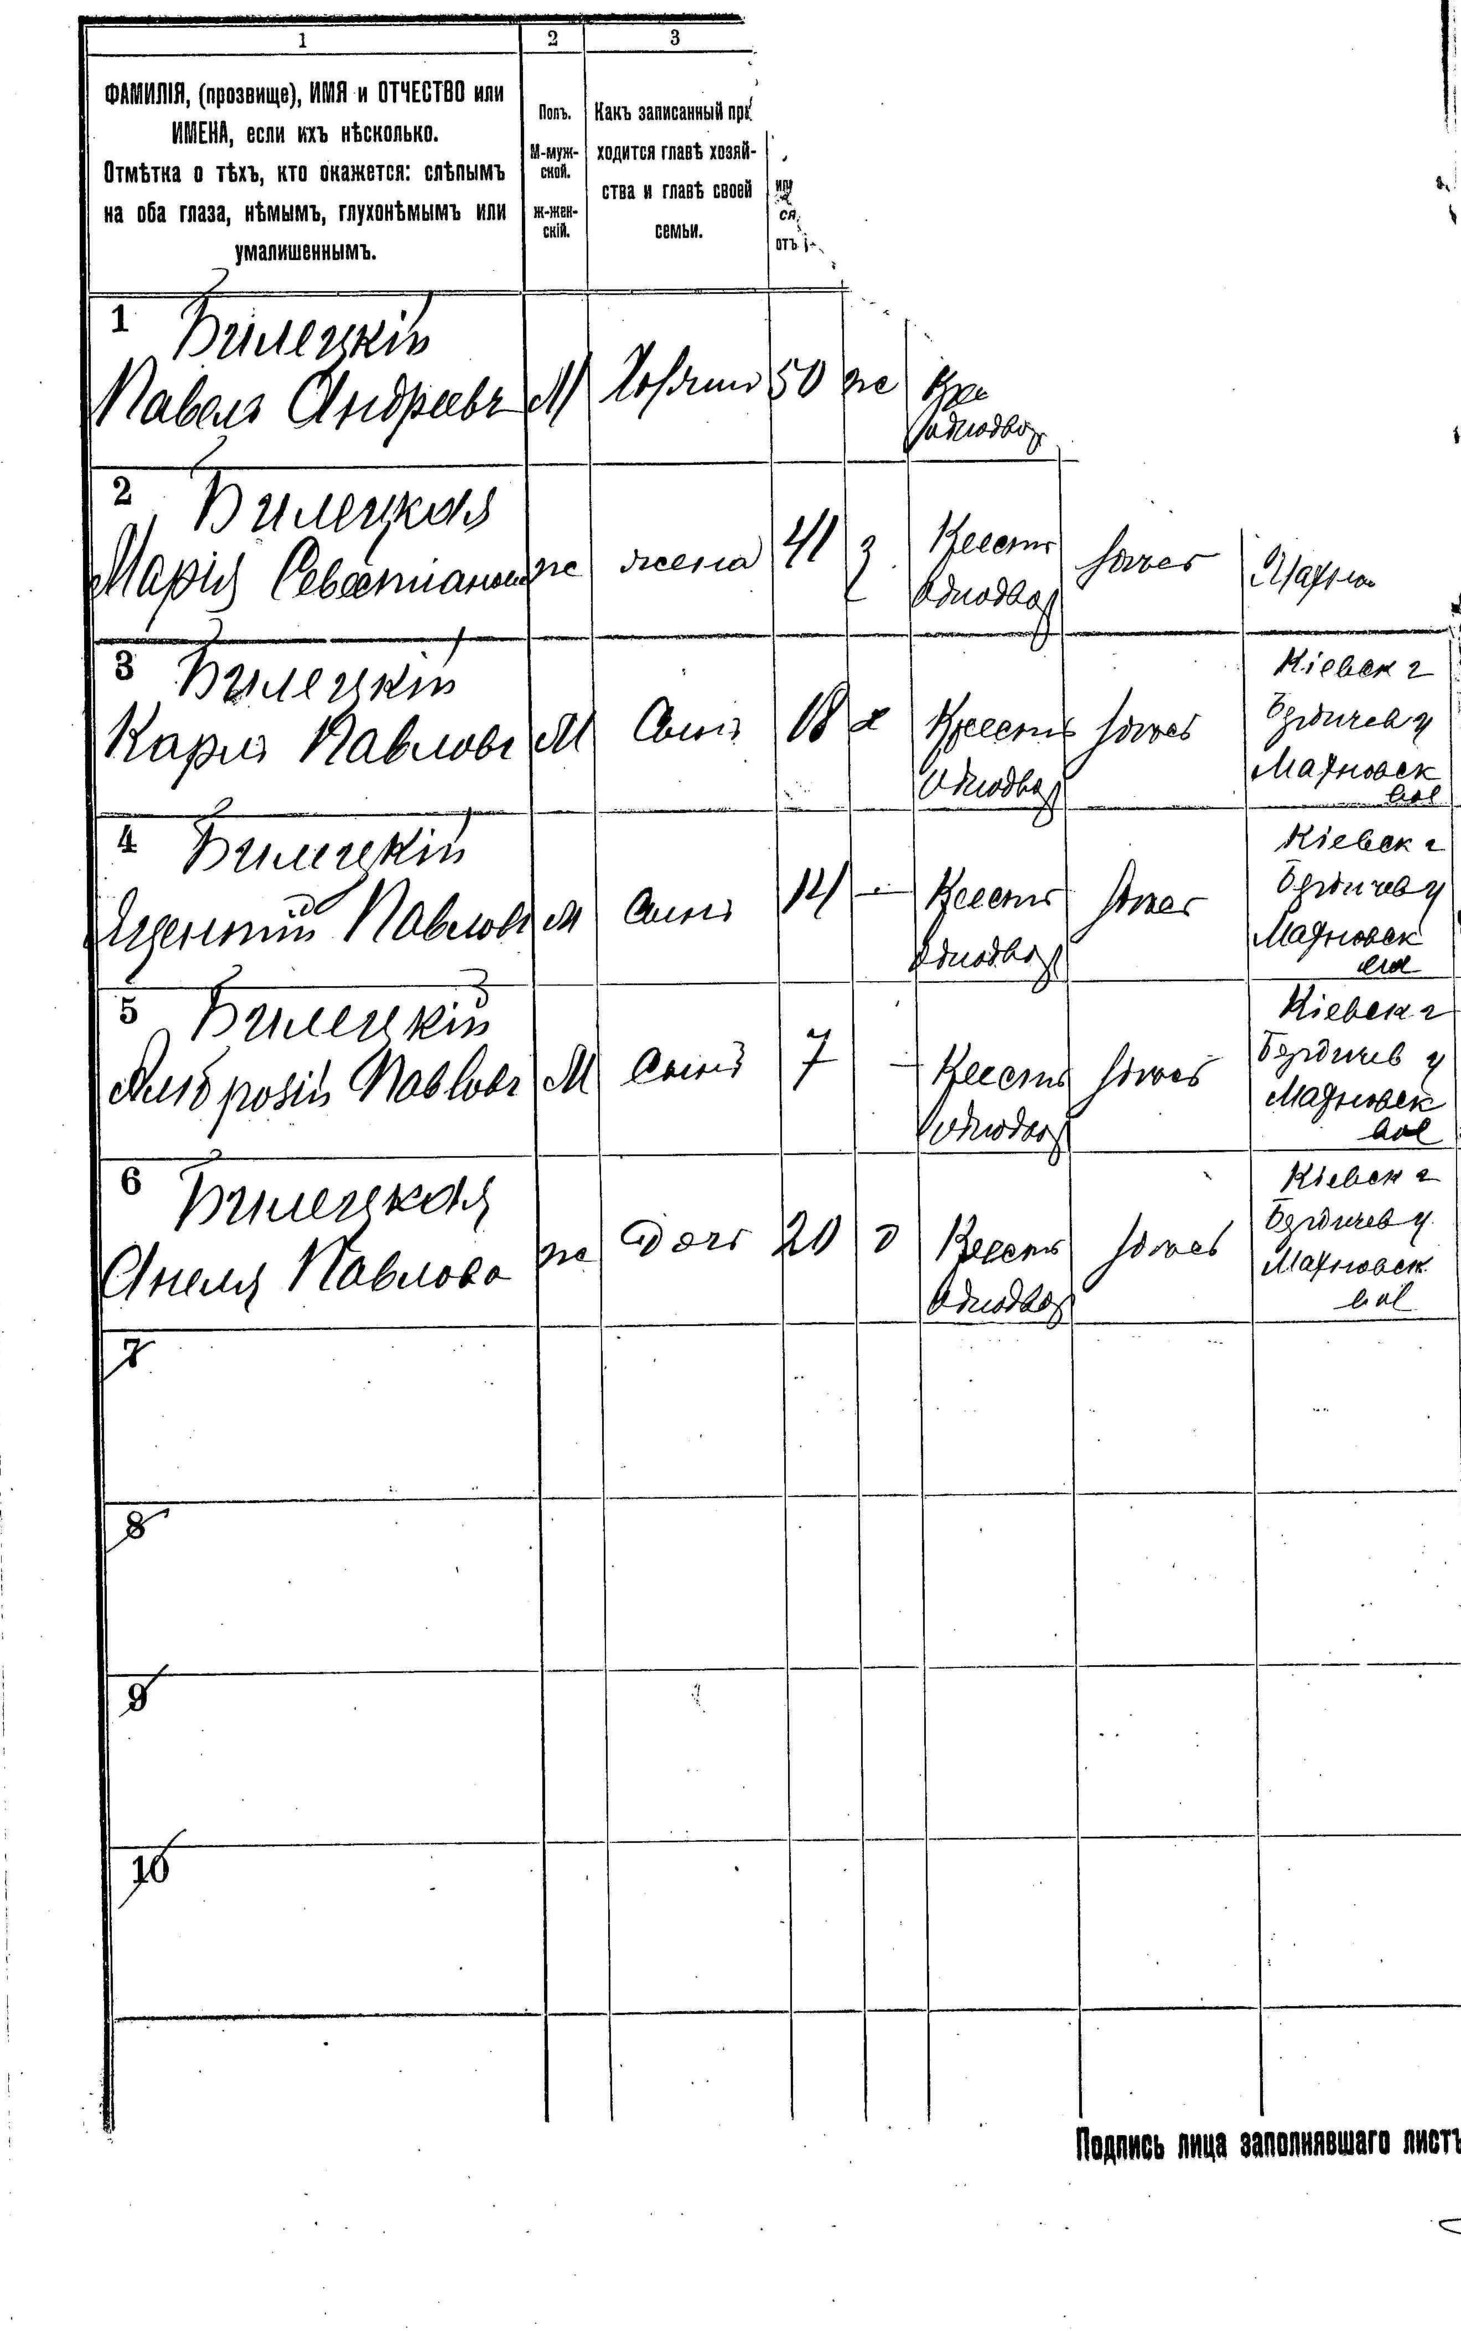 1 2 3
ФАМИЛІЯ, (прозвище), ИМЯ и ОТЧЕСТВО или
ИМЕНА, если ихъ нѣсколько.
Отмѣтка о тѣхъ, кто окажется: слѣпымъ
на оба глаза, нѣмымъ, глухонѣмымъ или
умалишеннымъ.
Полъ.
М-муж-
ской.
ж-жен-
скій.
Какъ записанный при
ходится главѣ хозяй-
ства и главѣ своей
семьи.
или
ся
отъ
1 Билецкій
Павелъ Андреевъ М Хозяинъ 50 ж Кре
однодвор
2 Билецкая
Марія Севастіанова ж жена 41 з Кресть
однодвор
здѣсь Махно
3 Билецкій
Карлъ Павловъ М Сынъ 18 х Кресть
однодвор
здѣсь
Кіевск г
Бердичев у
Махновск
вол
4 Билецкій
Яцентий Павловъ М Сынъ 14 - Кресть
однодвор
здѣсь
Кіевск г
Бердичев у
Махновск
вол
5 Билецкій
Амбросій Павловъ М Сынъ 7 - Кресть
однодвор
здѣсь
Кіевск г
Бердичев у
Махновск
вол
6 Билецкая
Анеля Павлова ж Дочь 20 д Кресть
однодвор
здѣсь
Кіевск г
Бердичев у
Махновск
вол
7
8
9
10
Подпись лица заполнявшаго листъ